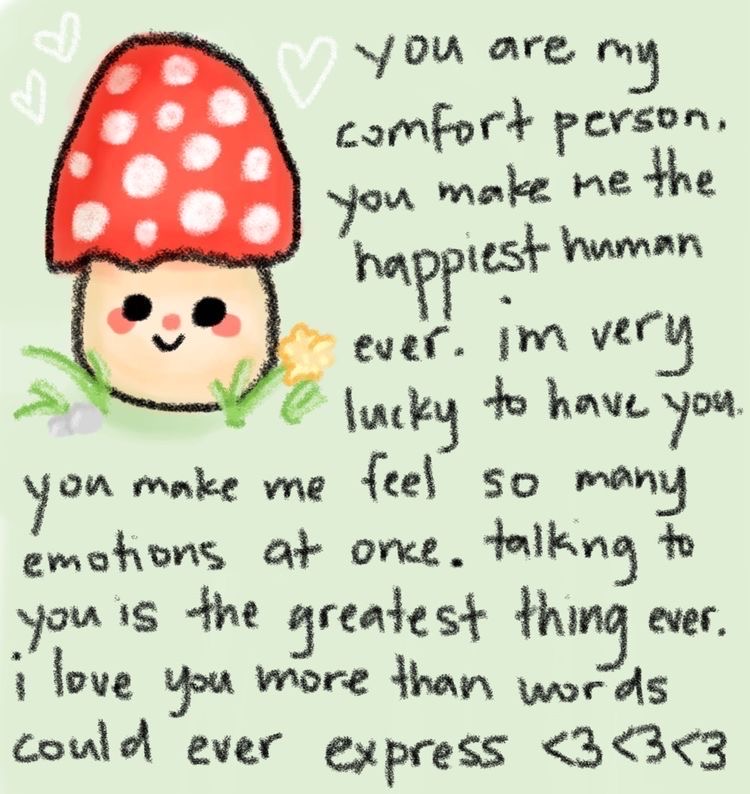 you are my
comfort person.
you make me the
happiest human
ever. im very
lucky to have you.
you make me feel so many
emotions at once. talking to
you is the greatest thing ever.
i love you more than words
could ever express <3<3<3